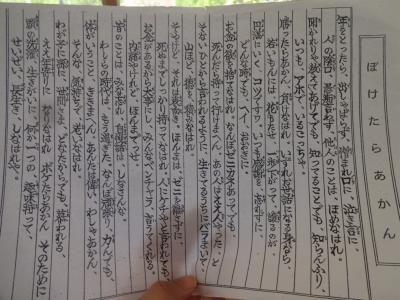 ぼけたらあかん
年をとったら、出しゃばらず、憎まれ口に、泣き言に、
人の陰口、愚痴言わず、他人のことは、ほめなはれ。
聞かれりゃ教えてあげてでも、知ってることでも、知らんふり、
いつも、アホで、いるこっちゃ。
勝ったらあかん、負けなはれ、いずれお世話になる身なら、
若いもんには、花もたせ、一歩下がって、譲るのが、
円満にいく、コツですわ。いつも感謝を、忘れずに、
どんな時でも、ヘイ、おおきに。
お金の欲を、捨てなはれ、なんぼゼニカネあってでも、
死んだら持って行けまへん。あの人はええ人やった、と
そないひとから言われるように、生きてるうちにバラまいて、
山ほど、徳を、積みなはれ。
そやけど、それは表向き、ほんまは、ゼニを離さずに、
死ぬまでしっかり持ってなはれ。人にケチやと言われても、
お金があるから大事にし、みんなベンチャラ、言うてくれる。
内証やけれど、ほんまでっせ。
昔のことは、みな忘れ、自慢話は、しなさんな。
わしらの時代は、もう過ぎた、なんぼ頑張り、力んでも、
体がいうこと、ききまへん。あんたは偉い、わしゃあかん、
そんな気持ちで、老いなはれ。
わが子に孫に、世間さま、どなたからでも、慕われる、
ええ年寄りに、なりなはれ。ボケたらあかん、そのために
頭の洗濯、生きがいに、何か一つの、趣味持って、
せいぜい、長生き、しなはれや。